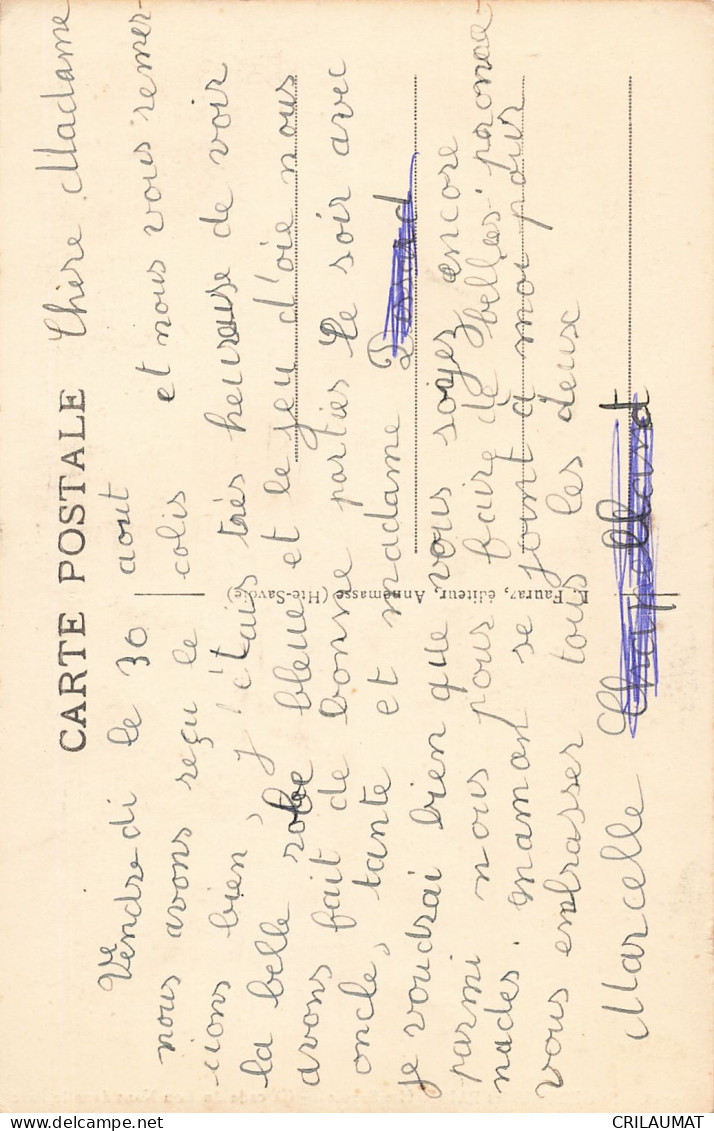 CARTE POSTALE
Chère Madame
Vendredi le 30 aout
nous avons reçu le colis et nous vous remer-
cions bien, j'étais très heureuse de voir
la belle robe bleue et le jeu d'oie nous
avons fait de bonne parties le soir avec
oncle, tante et madame
je voudrai bien que vous soyez encore
parmi nous pour faire de belles prome
nades. maman se joint à moi pour
vous embrasser tous les deux
Marcelle
E. Fauraz, éditeur, Annemasse (Hte-Savoie)
CRILAUMAT